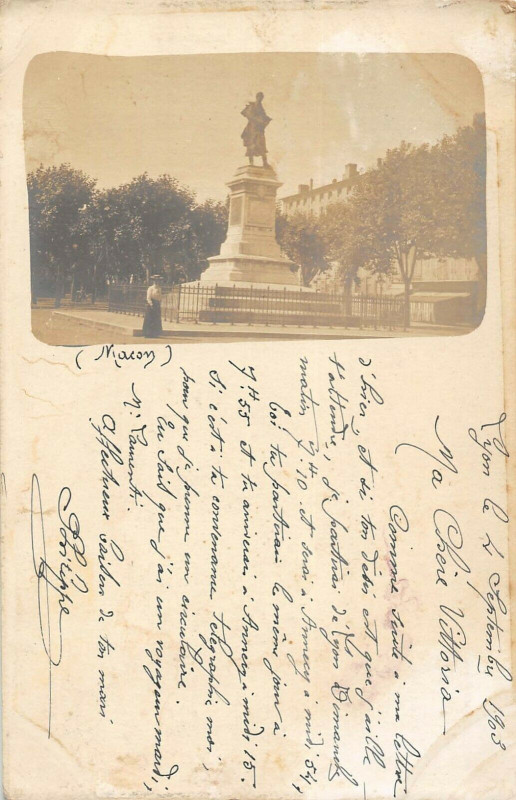 (Macon)
Lyon le 4 Septembre 1903
Ma Chère Vittoria
Comme suite à ma lettre
d'hier, et si ton désir est que j'aille
t'attendre, je partirai de Lyon Dimanche
matin 7h 10 et serai à Annecy à midi 54,
toi tu partirais le même jour à
7h 55 et tu arriverais à Annecy à midi 15.
Si c'est à ta convenance télégraphie moi,
pour que je prenne un circulaire.
Tu sais que j'ai un voyage mardi,
Mr Lament.
Affectueux baisers de ton mari
Philippe